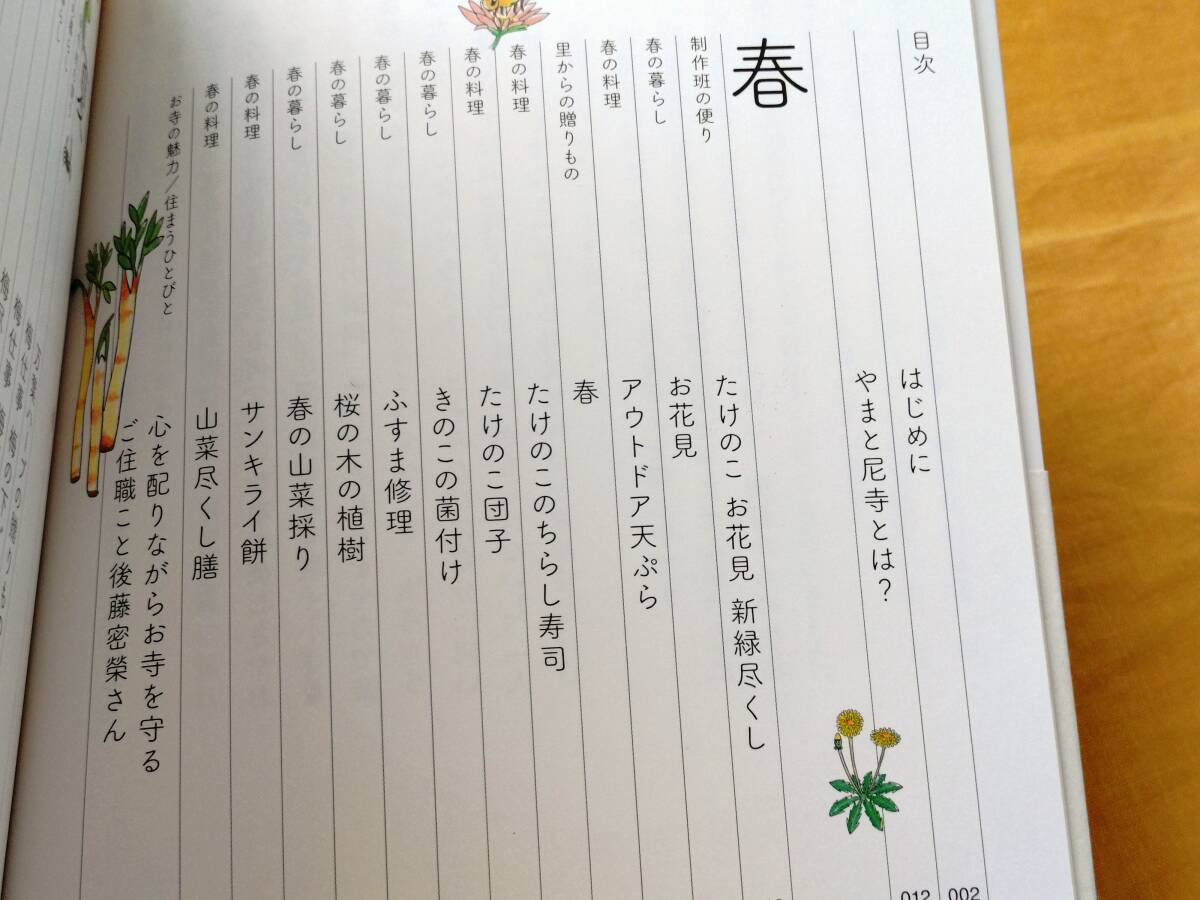 目次
はじめに
002
やまと尼寺とは？
012
春
制作班の便り
たけのこ お花見 新緑尽くし
春の暮らし
お花見
春の料理
アウトドア天ぷら
里からの贈りもの
春
春の料理
たけのこのちらし寿司
春の料理
たけのこ団子
春の暮らし
きのこの菌付け
春の暮らし
ふすま修理
春の暮らし
桜の木の植樹
春の暮らし
春の山菜採り
春の料理
サンキライ餅
春の料理
山菜尽くし膳
お寺の魅力／住まうひとびと
心を配りながらお寺を守る
ご住職こと後藤密榮さん